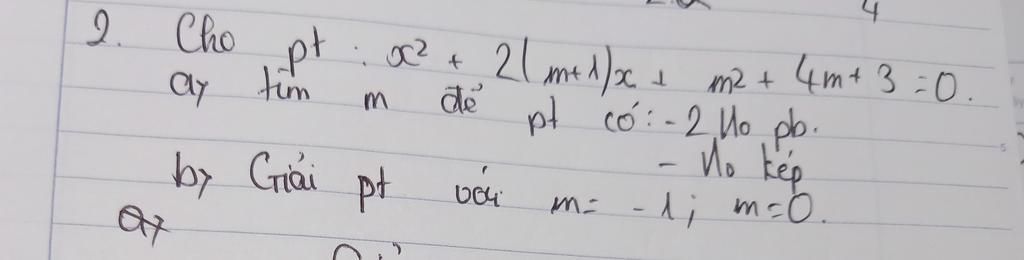 4
2. Cho pt : x² + 2(m+1)x + m² + 4m + 3 = 0.
a, tìm m để pt có: - 2 No pb.
- No kép
b, Giải pt với m = -1; m = 0.
a,